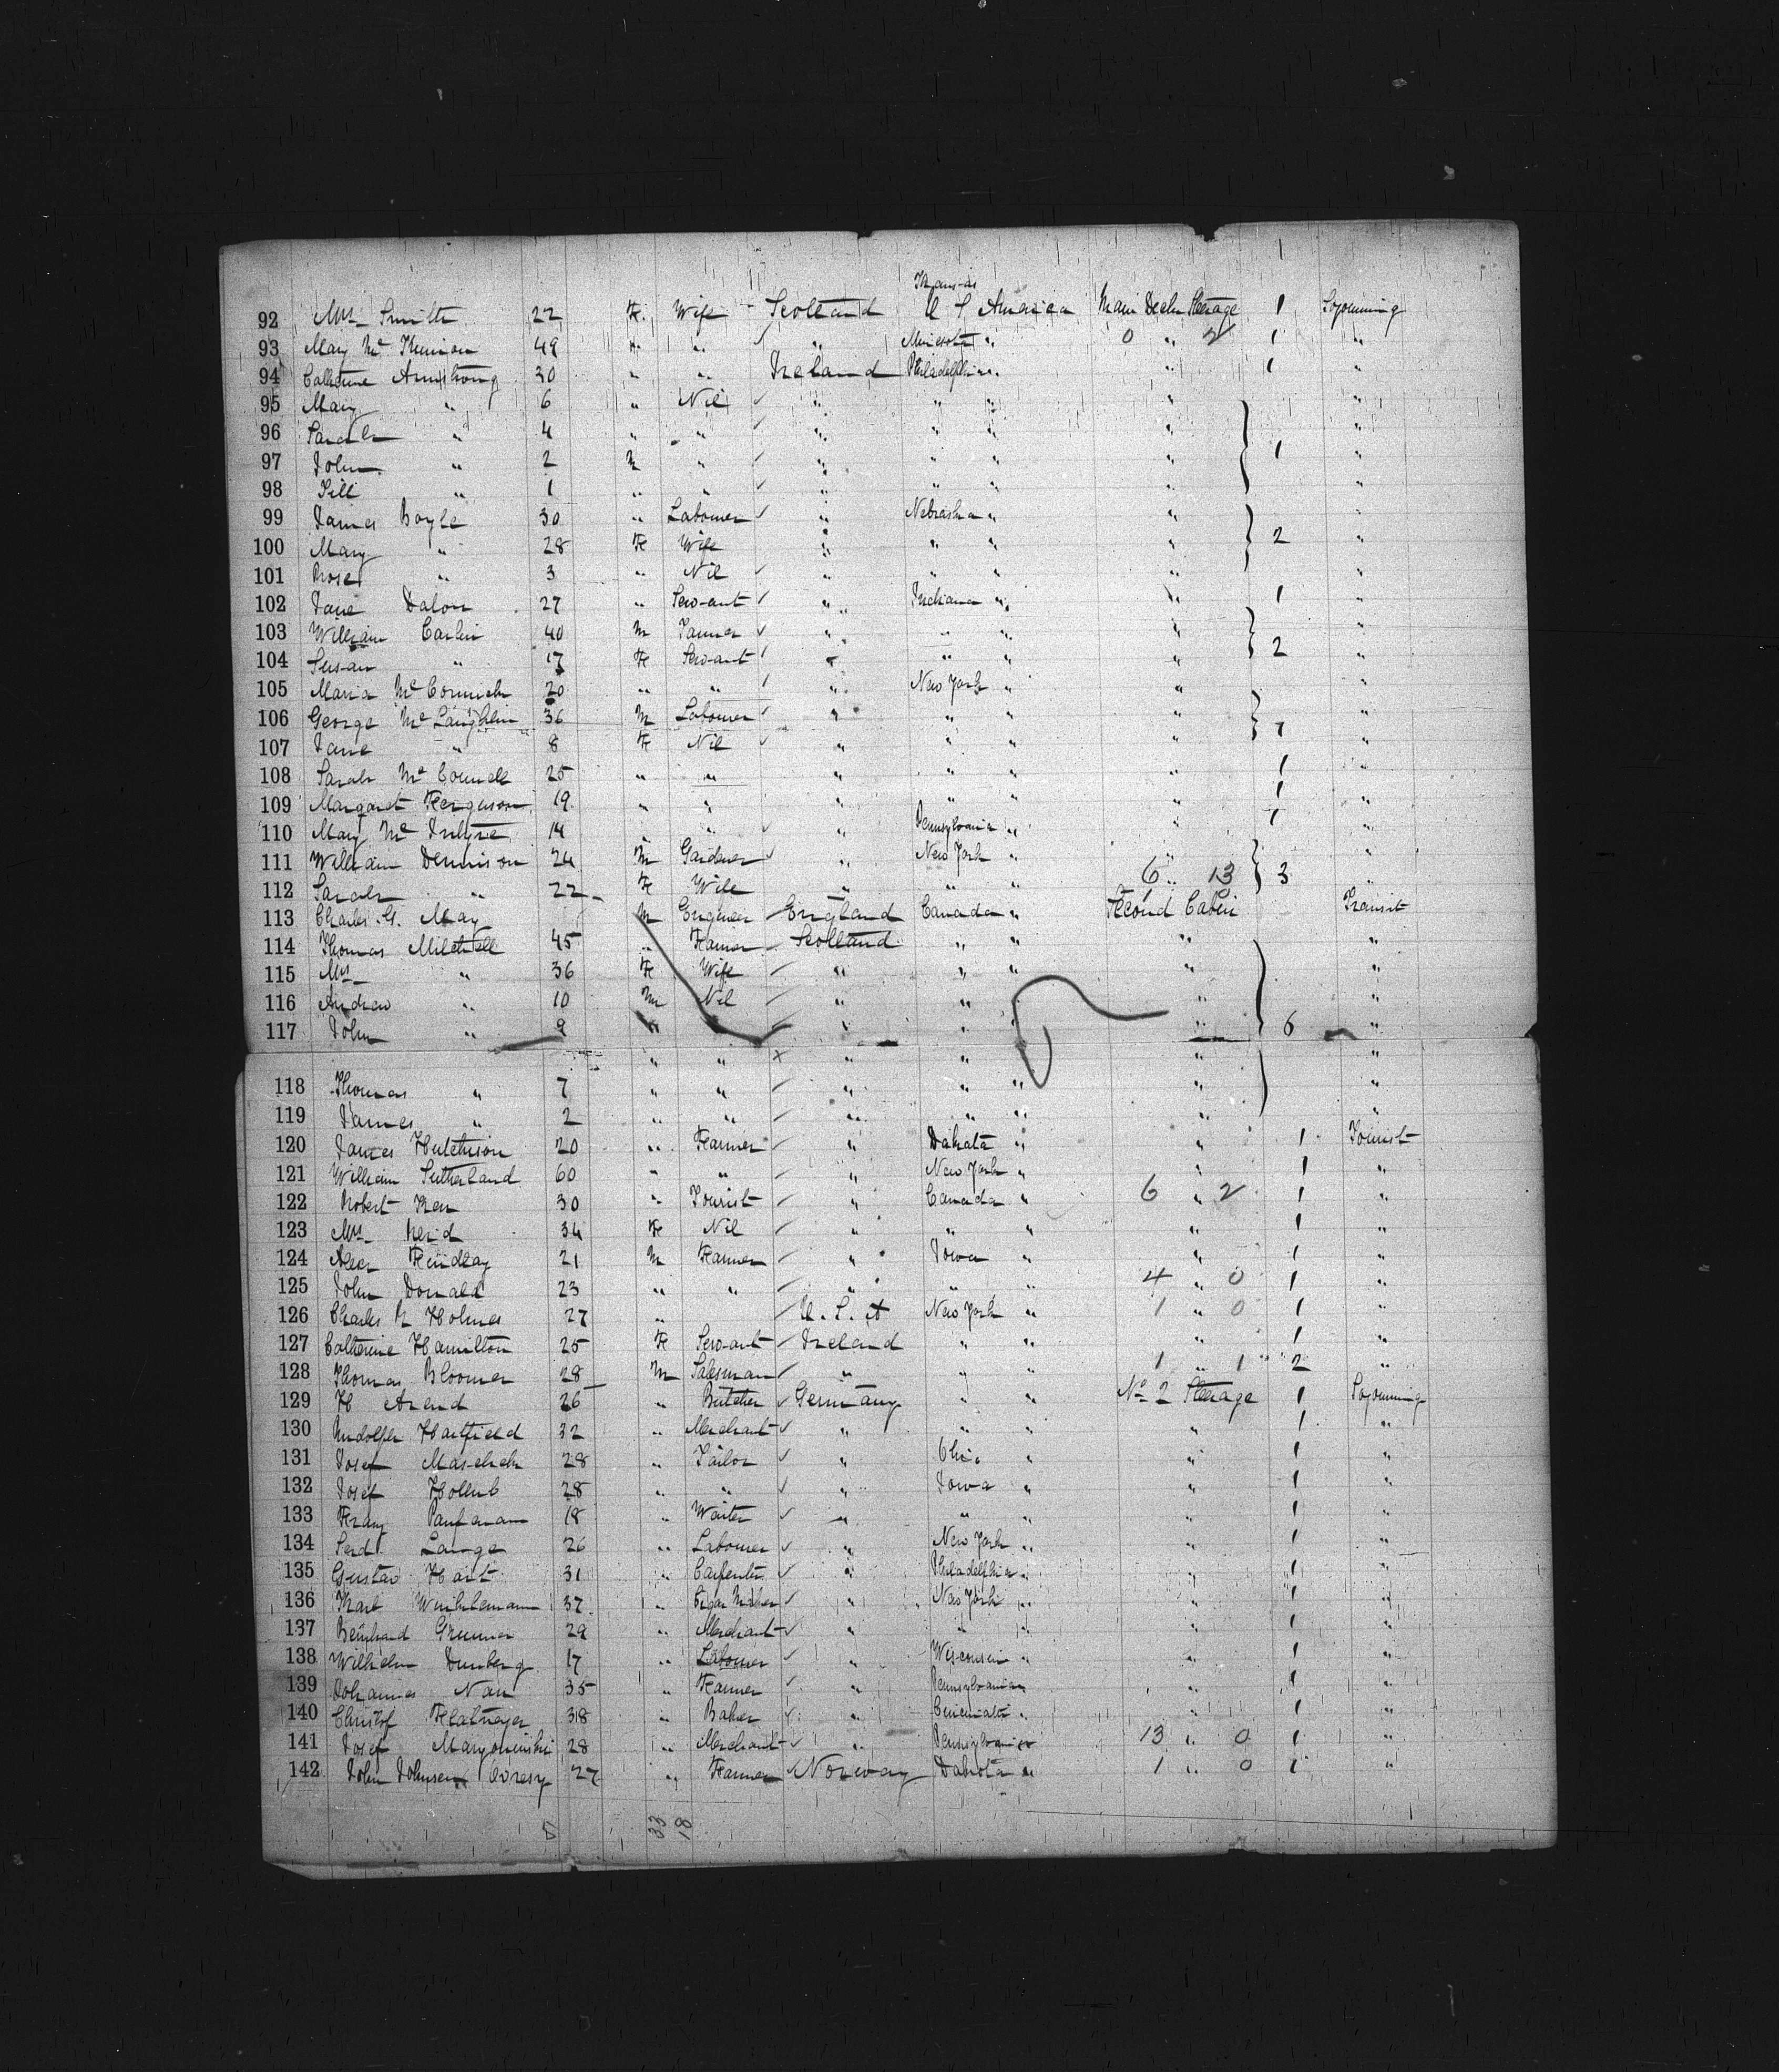 Kansas
92 Mrs Smith 22 F. Wife Scotland U S America Main Deck Steerage 1 Sojourning
93 Mary Mc 49 " " " Minesota " 0 " 2 1 "
94 Catherine Armstrong 30 " " Ireland Philadelphia " " 1 "
95 Mary " 6 " Nil " " " " "
96 Sarah " 4 " " " " " " "
97 John " 2 M " " " " " 1 "
98 " 1 " " " " " " "
99 James Boyle 30 " Labourer " Nebraska " " "
100 Mary " 28 F Wife " " " " 2 "
101 Rose " 3 " Nil " " " " "
102 Jane Dalon 27 " Servant " Indiana " " 1 "
103 William Carlin 40 M Farmer " " " " "
104 Susan " 17 F Servant " " " " 2 "
105 Maria McCormick 20 " " " New York " " "
106 George McLaughlin 36 M Labourer " " " " "
107 Jane " 8 F Nil " " " " 1 "
108 Sarah McConnell 25 " " " " " " 1 "
109 Margaret Ferguson 19 " " " " " " 1 "
110 Mary McIntyre 14 " " " Pennsylvania " " 1 "
111 William Dennison 24 M Gardener " New York " " "
112 Sarah " 22 F Wife " " " 6 " 13 3 "
113 Charles G. May M Engineer England Canada " Second Cabin Transit
114 Thomas Mitchell 45 " Farmer Scotland " " " "
115 Mrs " 36 F Wife " " " " "
116 Andrew " 10 M Nil " " " " "
117 John " 9 " " " " " " 6 "
" " x " " " "
118 Thomas " 7 " " " " " " "
119 James " 2 " " " " " " "
120 James Hutchison 20 " Farmer " Dakota " " 1 Tourist
121 William Sutherland 60 " " " New York " " 1 "
122 Robert Ker 30 " Tourist " Canada " 6 " 2 1 "
123 Mrs Reid 34 F Nil " " " " 1 "
124 Alex Findlay 21 M Farmer " Iowa " " 1 "
125 John Donald 23 " " " " " 4 " 0 1 "
126 Charles R Holmes 27 " U. S. A New York " 1 " 0 1 "
127 Catherine Hamilton 25 F Servant Ireland " " " 1 "
128 Thomas Bloomer 28 M Salesman " " " 1 " 1 2 "
129 H Arend 26 " Butcher Germany " " No 2 Steerage 1 Sojourning
130 Rudolph Hartfield 32 " Merchant " " " " 1 "
131 Josef 28 " Tailor " Ohio " " 1 "
132 Josef Hollub 28 " " " Iowa " " 1 "
133 Franz 18 " Waiter " " " " 1 "
134 Ferd Lange 26 " Labourer " New York " " 1 "
135 Gustav Hart 31 " Carpenter " Philadelphia " " 1 "
136 Karl Winkelmann 37 " Cigar Maker " New York " " 1 "
137 Bernhard 29 " Merchant " " " " 1 "
138 Wilhelm 17 " Labourer " Wisconsin " " 1 "
139 Johannes Nau 35 " Farmer " Pennsylvania " " 1 "
140 Christof 38 " Baker " Cincinatti " " 1 "
141 Josef 28 " Merchant " Pennsylvania " 13 " 0 1 "
142 John Johnsen 27 " Farmer Norway Dakota " 1 " 0 1 "
33 18